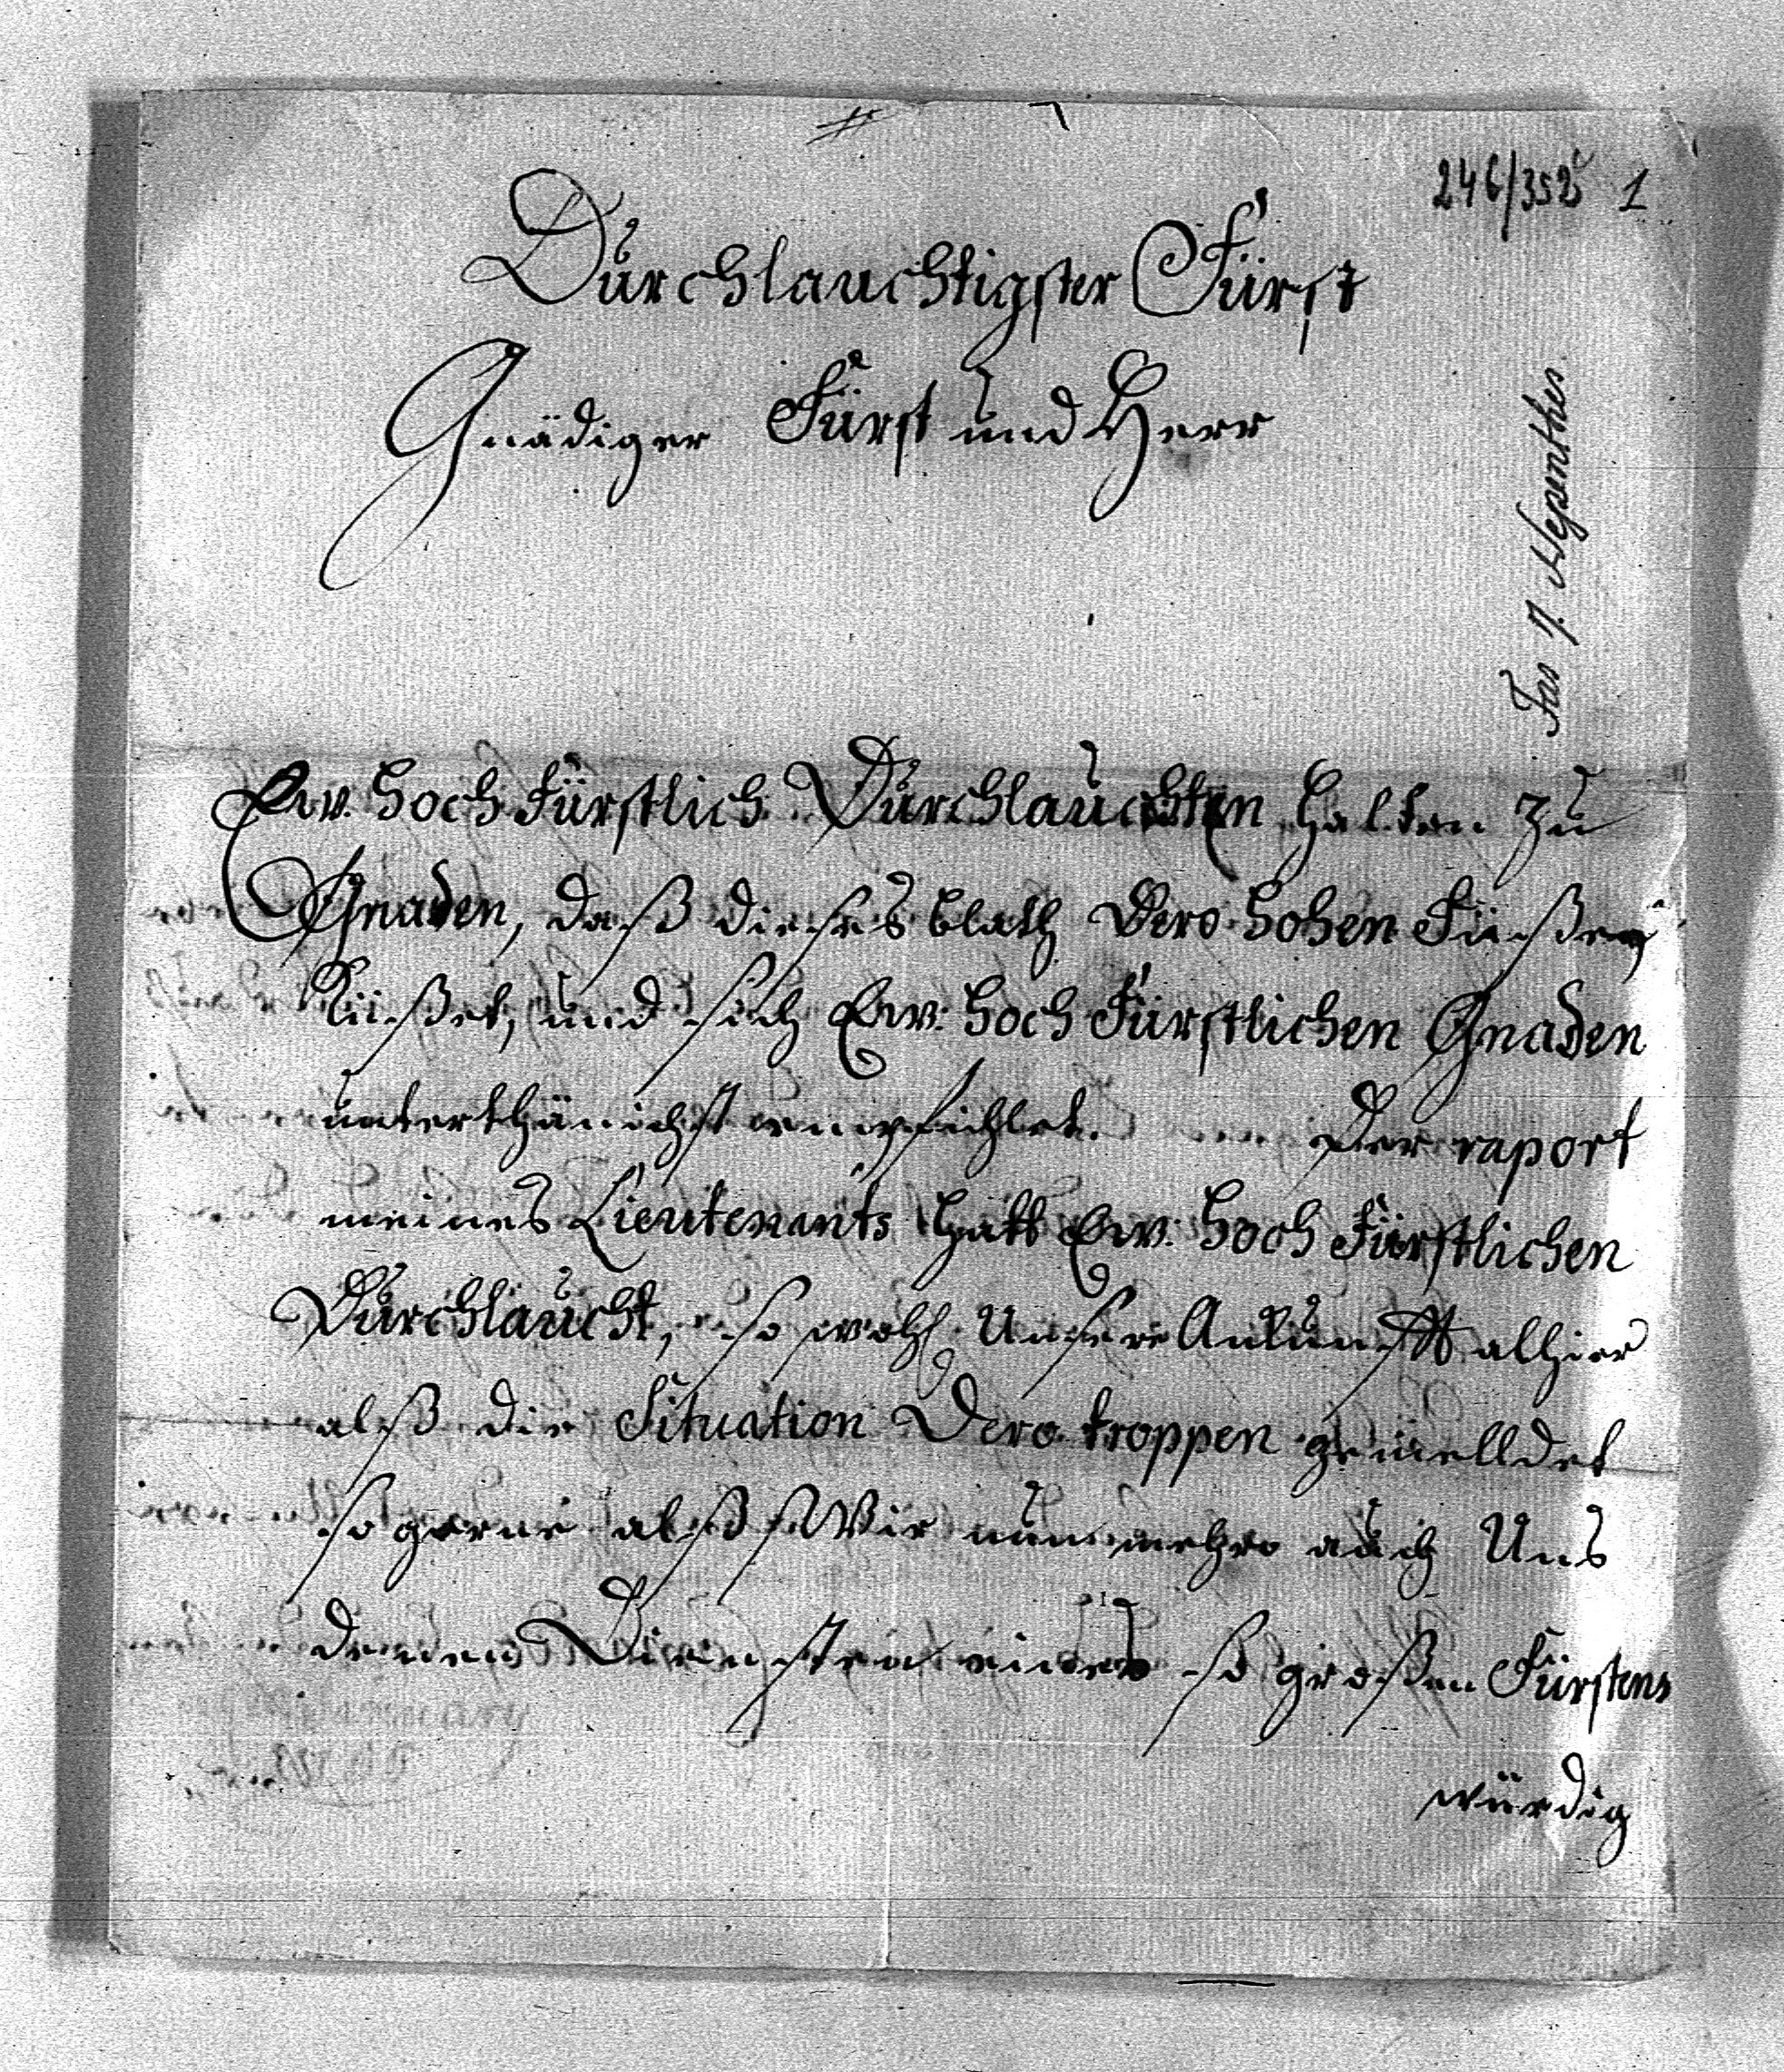 246/352 1
Durchlauchtigster Fürst
Gnädiger Fürst und Herr
Ew. Hoch Fürstlich. Durchlauchten halten zu
Gnaden, daß dieses blath Dero hohen Füeßen
küeßet, und sich Ew. Hoch Fürstlichen Gnaden
unterthänichst empfichlet. Der raport
meines Lieutenants hatt Ew. Hoch Fürstlichen
Durchlaucht, so wohl Unsere Ankunfft alhier
alß die Situation Dero troppen gemelldet
so gerne alß Wir nunmehro auch Uns
denen Diensten eines so großen Fürstens
würdig